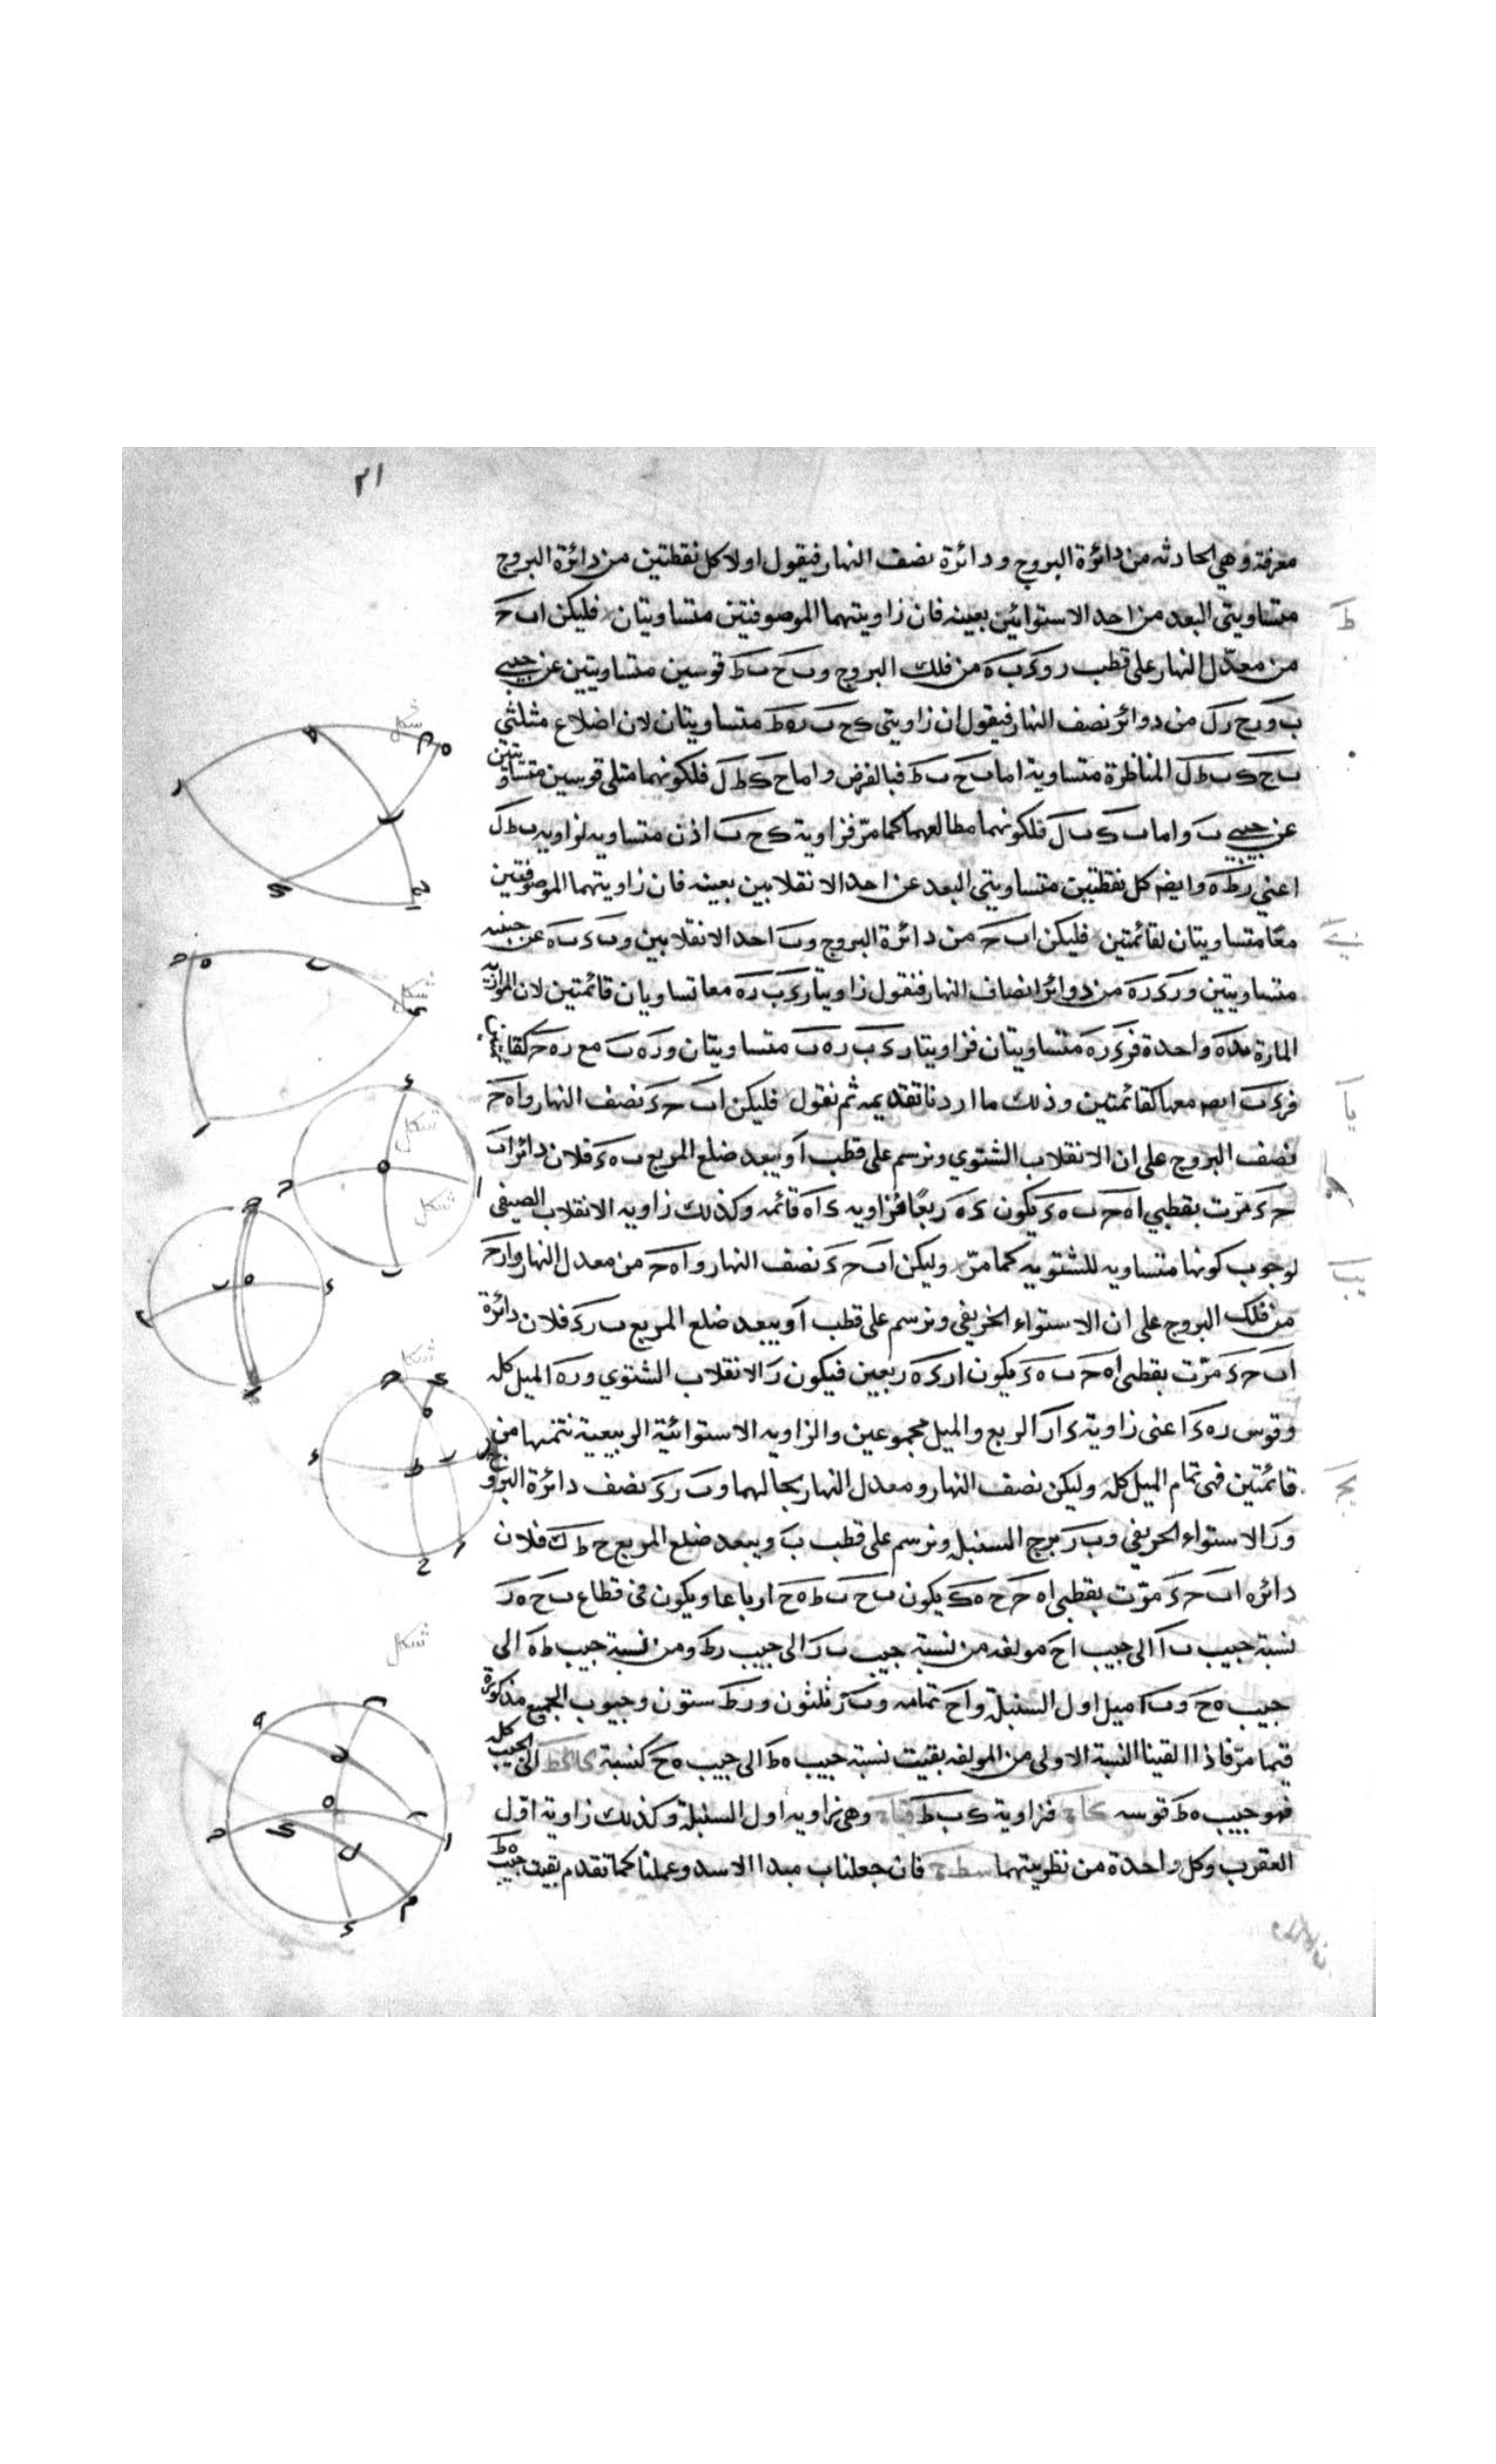 ٢١
معرفة وهي الحادثه من دائرة البروج ودائرة نصف النهار فيقول اولا كل نقطتين من دائرة البروج
متساويتي البعد من احد الاستوائين بعينه فان زاويتهما الموصوفتين متساويتان فليكن اب ح
من معدّل النهار على قطب ر وء ب ه من فلك البروج وب ح ب ط قوسين متساويتين عن جنبي
ب ورح رل من دوائر نصف النهار فيقول ان زاويتي ك ح ب ر ط ه متساويتان لان اضلاع مثلثي
ب ح ك ب ط ل المناظرة متساوية اما ب ح ب ط فبالفرض واما ح ك ط ل فلكونهما ميلي قوسين متساويتين
عن جنبي ب واما ب ك ب ل فلكونهما مطالعهما كما مرّ فزاوية ك ح ب اذن متساويه لزاويه ب ط ل
اعني ر ط ه وايضه كل نقطتين متساويتي البعد عن احد الانقلابين بعينه فان زاويتهما الموصوفتين
معًا متساويتان لقائمتين فليكن اب ح من دائرة البروج وب احد الانقلابين وب ء ب ه عن جنبيه
متساويتين ور ء ر ه من دوائر انصاف النهار فنقول زاويتا ر ء ب ر ه معا تساويان قائمتين لان الموازية
المارة بء ه واحدة فر ء ر ه متساويتان فزاويتا ر ء ب ر ه ب متساويتان ور ه ب مع ر ه ح كقائمتين
فر ء ب ايضه معها كقائمتين وذلك ما اردنا تقديمه ثم نقول فليكن اب ح ء نصف النهار وا ه ح
نصف البروج على ان الانقلاب الشتوي ونرسم على قطب ا وببعد ضلع المربع ب ه ء فلان دائرة اب
ح ء مرّت بقطبي ا ه ح ب ه ء يكون ء ه ربعًا فزاويه ء ا ه قائمه وكذلك زاويه الانقلاب الصيفى
لوجوب كونها متساويه للشتويه كما مرّ وليكن اب ح ء نصف النهار وا ه ح من معدل النهار وا ر ح
من فلك البروج على ان الاستواء الخريفي ونرسم على قطب ا وببعد ضلع المربع ب ر ء فلان دائرة
اب ح ء مرّت بقطبى ا ه ح ب ه ء يكون ا ر ء ه ربعين فيكون ر الانقلاب الشتوي ور ه الميل كله
وقوس ر ه ء اعنى زاوية ء ا ر الربع والميل مجموعين والزاويه الاستوائية الربيعية تتمتها من
قائمتين فهى تمام الميل كله وليكن نصف النهار ومعدل النهار بحالهما وب ر ء نصف دائرة البروج
ور الاستواء الخريفي وب ر برج السنبله ونرسم على قطب ب وببعد ضلع المربع ح ط ك فلان
دائره اب ح ء مرّت بقطبى ا ه ح ح ه ك يكون ب ح ب ط ه ح ارباعا ويكون في قطاع ب ح ه ر
نسبة جيب ب ا الى جيب ا ح مولفه من نسبة جيب ب ر الى جيب ر ط ومن نسبة جيب ط ه الى
جيب ه ح وب ا ميل اول السنبلة وا ح تمامه وب ر ثلثون ور ط ستون وجيوب الجميع مذكورة
فيما مرّ فاذا القينا النسبة الاولى من المولفه بقيت نسبة جيب ه ط الى جيب ه ح كنسبة الى الجيب كله
فهو جيب ه ط قوسه فزاوية ك ب ط وهي زاويه اول السنبلة وكذلك زاوية اول
العقرب وكل واحدة من نظريتهما فان جعلنا ب مبدا الاسد وعملنا كما تقدم بقيت جيب ه ط
شكل
شكل
شكل
شكل
شكل
شكل